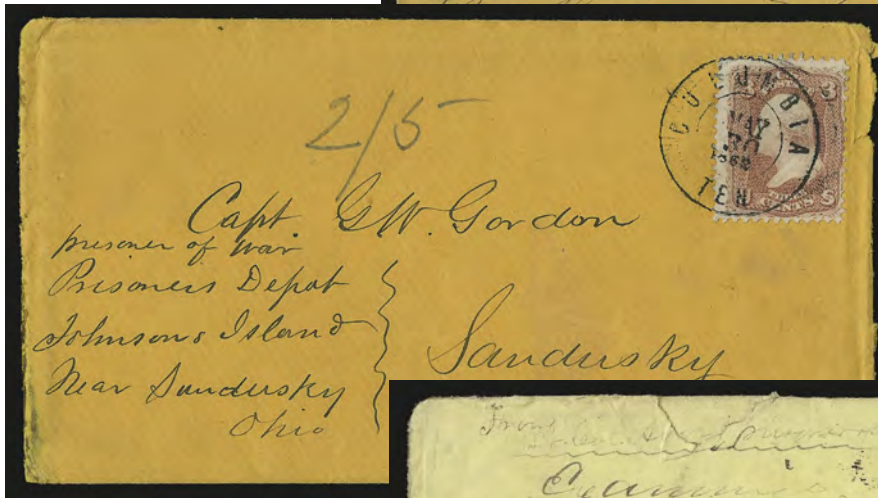 2/5
COLUMBIA
MAY
30
TEN
3 3
CENTS
U S
Capt. G.W. Gordon
prisoner of war
Prisoners Depot
Johnsons Island
Near Sandusky
Ohio
Sandusky
From